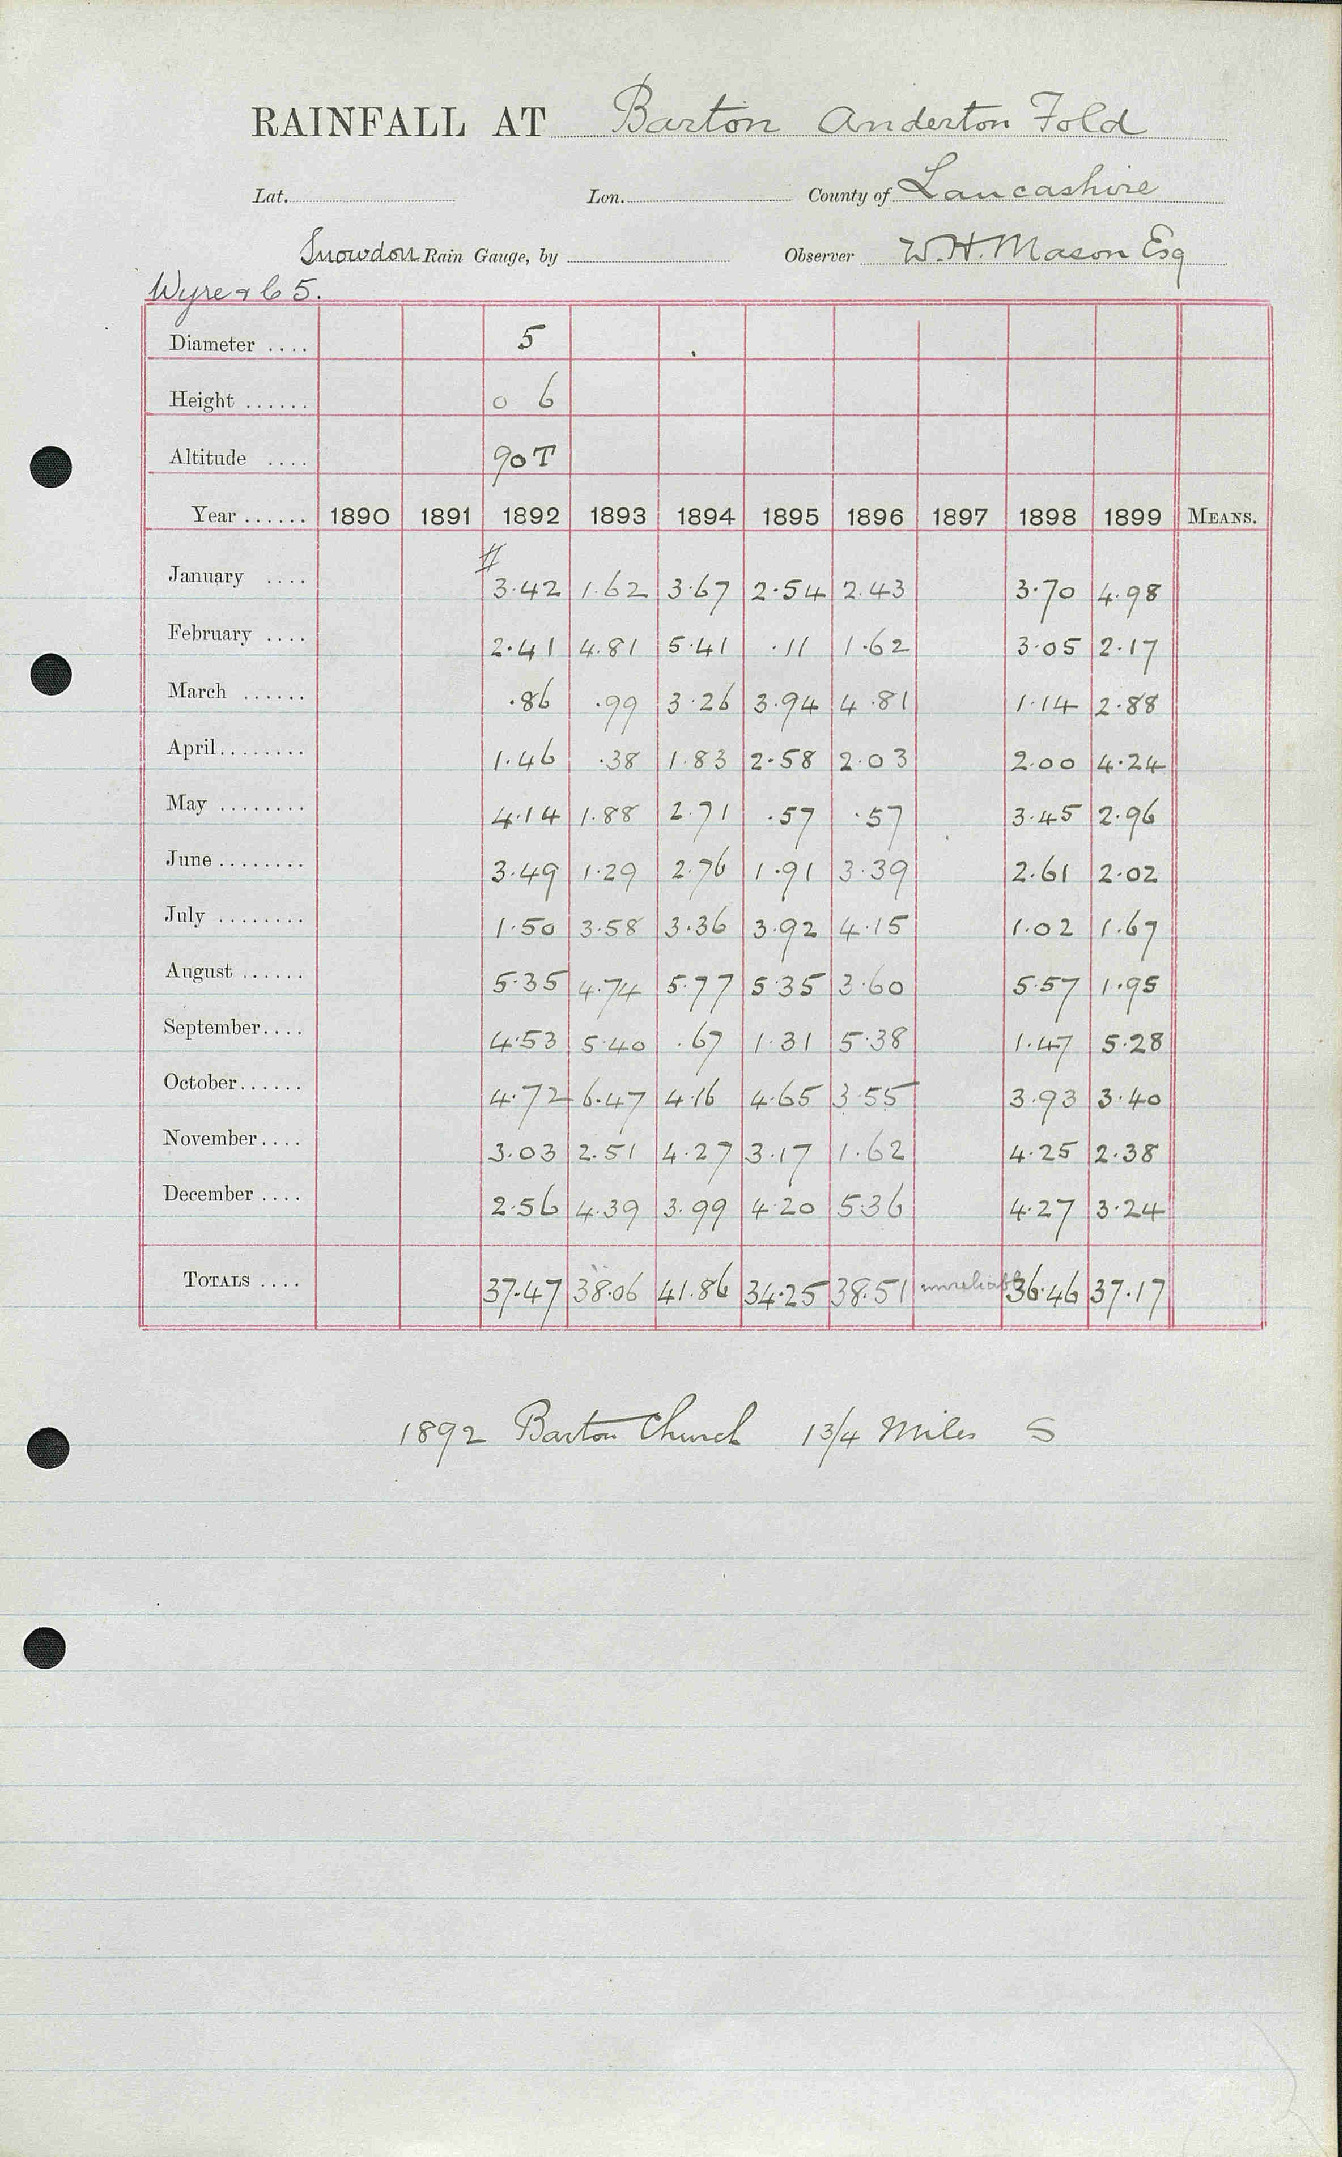 RAINFALL AT Barton Anderton Fold
Lat. Lon. County of Lancashire
Snowdon Rain Gauge, by Observer W. H. Mason Esq
Wyre & 65.
Diameter .... 5
Height ...... 0 6
Altitude .... 90T
Year ...... 1890 1891 1892 1893 1894 1895 1896 1897 1898 1899 MEANS.
#
January .... 3.42 1.62 3.67 2.54 2.43 3.70 4.98
February .... 2.41 4.81 5.41 .11 1.62 3.05 2.17
March ...... .86 .99 3.26 3.94 4.81 1.14 2.88
April........ 1.46 .38 1.83 2.58 2.03 2.00 4.24
May ........ 4.14 1.88 2.71 .57 .57 3.45 2.96
June ........ 3.49 1.29 2.76 1.91 3.39 2.61 2.02
July ........ 1.50 3.58 3.36 3.92 4.15 1.02 1.67
August ...... 5.35 4.74 5.77 5.35 3.60 5.57 1.95
September.... 4.53 5.40 .67 1.31 5.38 1.47 5.28
October...... 4.72 6.47 4.16 4.65 3.55 3.93 3.40
November.... 3.03 2.51 4.27 3.17 1.62 4.25 2.38
December .... 2.56 4.39 3.99 4.20 5.36 4.27 3.24
TOTALS .... 37.47 38.06 41.86 34.25 38.51 unreliable 36.46 37.17
1892 Barton Church 1 3/4 Miles S